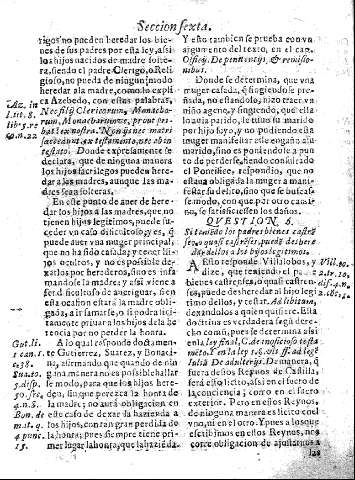 Seccion sexta.
rigos no pueden heredar los bie-
nes de sus padres por esta ley, assi
los hijos nacidos de madre solte-
ra, siendo el padre Clerigo, o Reli-
gioso, no pueda de ningun modo
heredar a la madre, como lo expli-
ca Azebedo, con estas palabras,
Nec filij Clericorum, Monacha-
rum, Monachorumve, prout pro-
bat lex nostra. Non ij nec matri
succedunt, ex testamento, nec ab in
testato. Donde expressamente se
declara, que de ninguna manera
los hijos sacrilegos pueden here-
dar a las madres, aunque las ma-
dres sean solteras.
En este punto de auer de here-
dar los hijos a las madres, que no
tienen hijos legitimos, puede su-
ceder vn caso dificultoso, y es, que
puede auer vna muger principal,
que no ha sido casada, y tener hi-
jos ocultos, y no es possible de-
xarlos por herederos, sino es infa-
mandose la madre; y assi viene a
ser dificultoso de aueriguar, si en
esta ocasion estarà la madre obli-
gada, a infamarse, o si podra licita-
mente priuar a los hijos de la he-
rencia por no perder la honra.
A lo qual respondo doctamen-
te Gutierrez, Suarez, y Bonaci-
na, afirmando que quando de nin-
guna manera no es possible hallar-
se modo, para que los hijos here-
den, sin que perezca la honra de
la madre; no aurà obligacion en
este caso de dexar da hazienda a
los hijos, con tan gran perdida de
la honra; pues siempre tiene pri-
mer lugar la honra, que la hazieda.
Az. in
l.tit. 8.
lib. 5. re
co. n. 22
Gut. li.
1 can. 1.
c. 38.
Sua. 10.
3. disp.
50. sec.
4. n. 8.
Bon. de
mat. q.
4 punc.
15.
Y esto tambien se prueba con vn
argumento del texto, en el cap.
Officij. De pœnitentijs, & remissio-
nibus.
Donde se determina, que vna
muger casada, que fingiendose pre-
ñada, no estandolo, hizo traer vn
niño ageno, y fingiendo que le
auia parido, le tuuo su marido
por hijo suyo, y no pudiendo esta
muger manifestar este engaño al
marido, sino es poniendose a pun-
to de perderse, siendo consultado
el Pontifice, respondio, que no
estaua obligada la muger a mani-
festar su delito, sino que se buscas-
se modo, con que por otro cami-
no, se satisfiziessen los daños.
QVESTION 6.
Si teniendo los padres bienes castrẽ-
ses, o quasi castrẽses, puedẽ deshere
dar dellos a los hijos legitimos.
A Esto responde Villalobos, y
dize, que teniendo el padre
bienes castrenses, o quasi castren-
ses, puede desheredar al hijo legi-
timo dellos, y testar. Ad libitum,
dexandolos a quien quisiere. Esta
doctrina es verdadera segũ dere-
cho comũ, pues se determina assi
en la ley final, C. de inoficioso testa
meto. Y en la ley 1. 6. vls ff. ad legẽ
falsiã De adulterijs. De manera, q̃
fuera destos Reynos de Castilla,
serà esto licito, assi en el fuero de
la conciencia; como en el fuero
exterior. Pero en estos Reynos,
de ninguna manera es licito en el
vno, ni en el otro. Y pues a los que
escribimos en estos Reynos, nos
corre obligacion de ajustarnos a
las